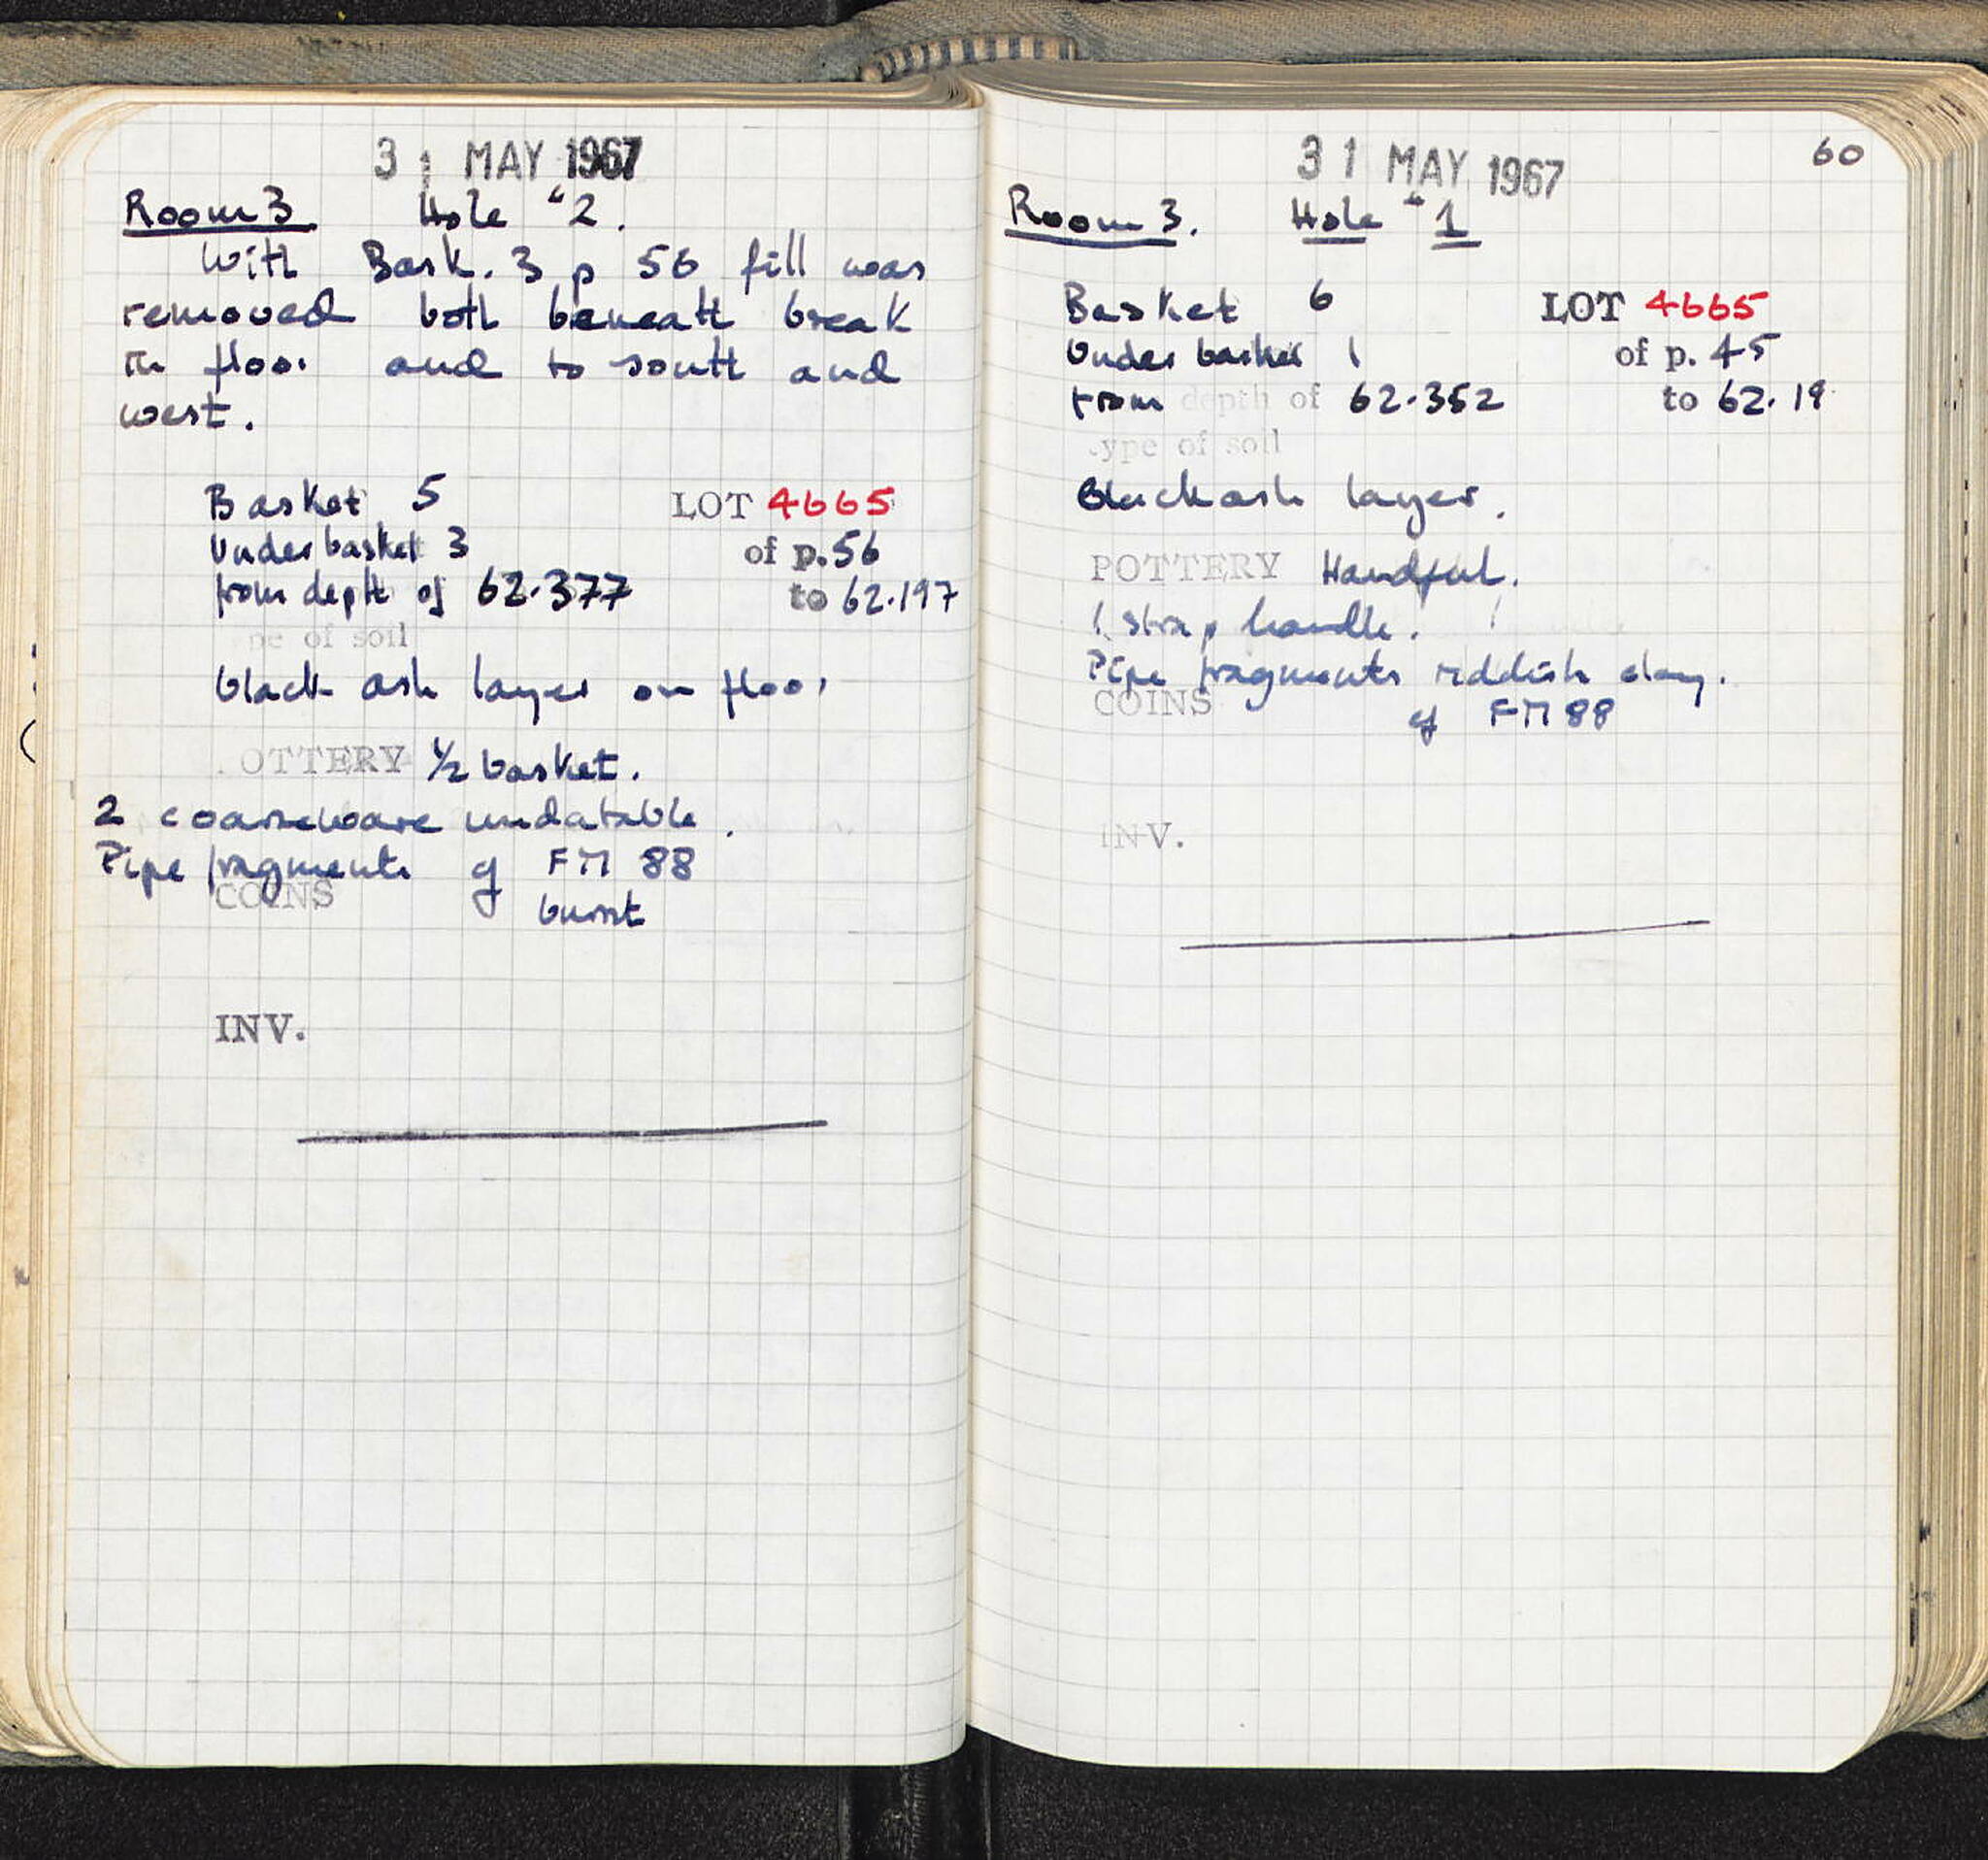 31 MAY 1967
Room 3 Hole "2.
With Bask. 3 p 56 fill was
removed both beneath break
in floor and to south and
west.
Basket 5 LOT 4665
Under basket 3 of p.56
from depth of 62.377 to 62.197
pe of soil
black ash layer on floor
OTTERY 1/2 basket.
2 coarseware undatable.
Pipe fragments cf FM 88
COINS burnt
INV.
60
31 MAY 1967
Room 3. Hole "1
Basket 6 LOT 4665
Under basket 1 of p. 45
from depth of 62.352 to 62.19
ype of soil
Black ash layer.
POTTERY Handful.
1 strap handle.
Pipe fragments reddish clay.
COINS cf FM 88
INV.